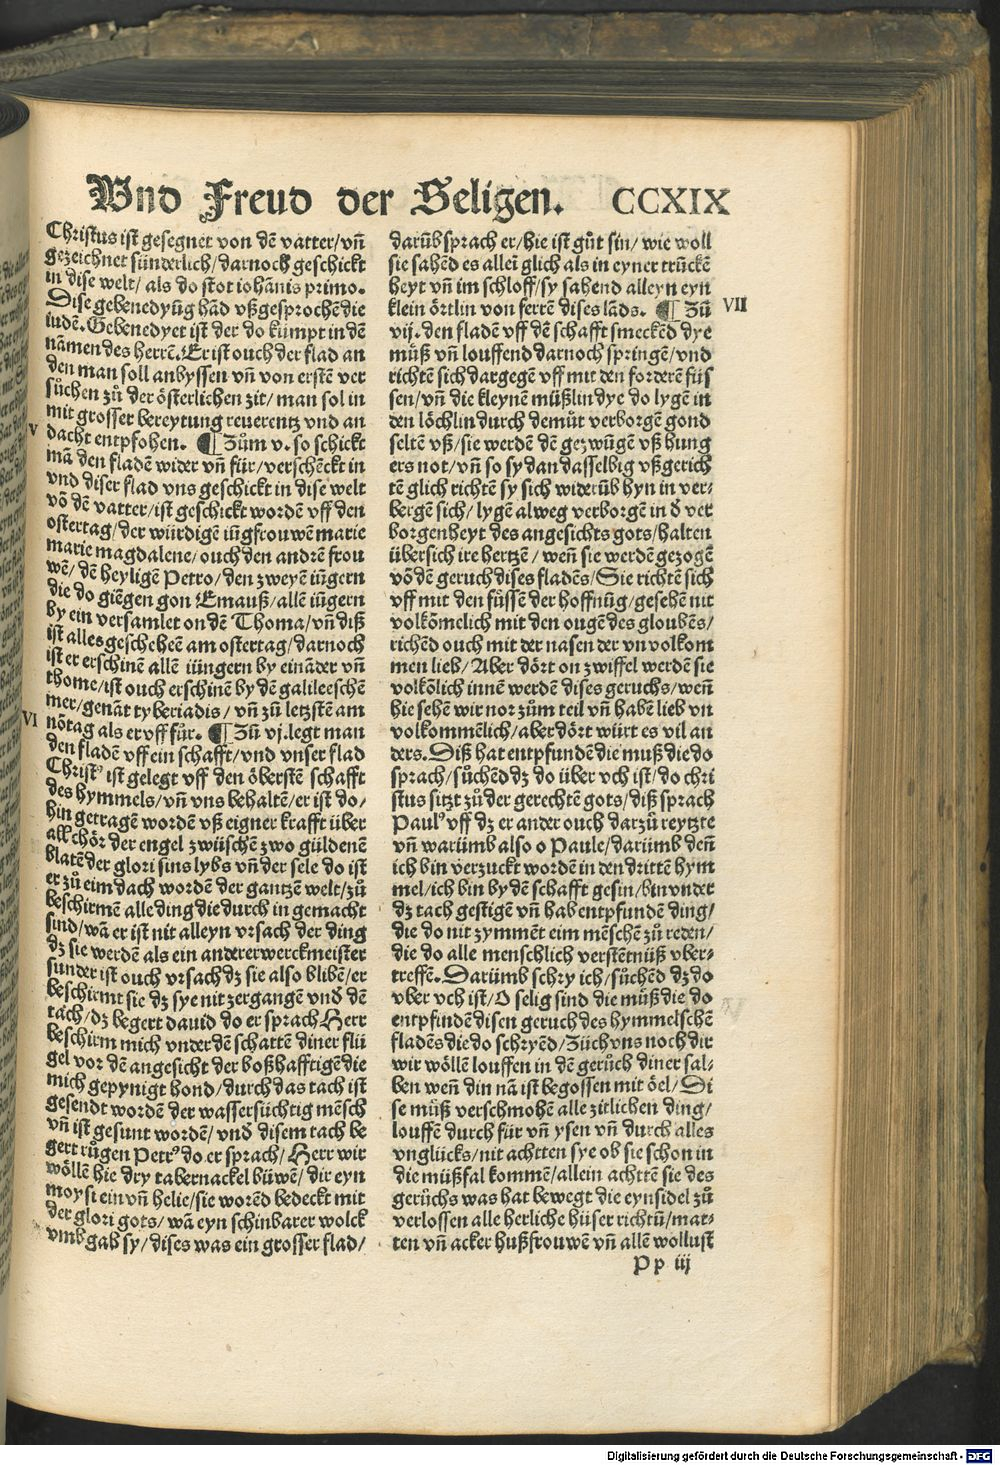 Vnd Freud der Seligen. CCXIX
Christus ist gesegnet von dē vatter/vñ
gezeichnet sünderlich/darnoch geschickt
in dise welt/als do stot iohānis primo.
Dise gebenedyūg hād vßgesprochē die
iudē. Gebenedyet ist der do kümpt in dē
namen des herrē. Er ist ouch der flad an
den man soll anbyssen vñ von erstē ver
sůchen zů der österlichen zit/man sol in
mit grosser bereytung reuerentz vnd an
dacht entpfohen. ¶ Zům v. so schickt
V
mā den fladē wider vñ für/verschēckt in
vnd diser flad vns geschickt in dise welt
vō dē vatter/ist geschickt wordē vff den
ostertag/der würdigē iūgfrouwē marie
marie magdalene/ouch den andrē frou
wē/dē heyligē Petro/den zweyē iūgern
die do giēgen gon Emauß/allē iūgern
by ein versamlet on dē Thoma/vñ diß
ist alles gescheheē am ostertag/darnoch
ist er erschinē allē iüngern by eināder vñ
thome/ist ouch erschinē by dē galileeschē
mer/genāt tyberiadis/vñ zů letzstē am
VI
nōtag als er vff fůr. ¶ Zū vj. legt man
den fladē vff ein schafft/vnd vnser flad
Christ⁹ ist gelegt vff den öberstē schafft
des hymmels/vñ vns behaltē/er ist do/
hin getragē wordē vß eigner krafft über
all chör der engel zwüschē zwo güldenē
blatē der glori sins lybs vñ der sele do ist
er zů eim dach wordē der gantzē welt/zů
beschirmē alle ding die durch in gemacht
sind/wā er ist nit alleyn vrsach der ding
dz sie werdē als ein anderer werckmeister
sunder ist ouch vrsach dz sie also blibē/er
beschirmt sie dz sye nit zergangē vnd dē
tach/dz begert dauid do er sprach Herr
beschirm mich vnder dē schattē diner flü
gel vor dē angesicht der boßhafftigē die
mich gepynigt hond/durch das tach ist
gesendt wordē der wassersüchtig mēsch
vñ ist gesunt wordē/vnd disem tach be
gert růgen Petr⁹ do er sprach/Herr wir
wöllē hie dry tabernackel büwē/dir eyn
moysi ein vñ helie/sie worēd bedeckt mit
der glori gots/wā eyn schinbarer wolck
vmbgab sy/dises was ein grosser flad/
darūb sprach er/hie ist gůt sin/wie woll
sie sahēd es alleī glich als in eyner trückē
heyt vñ im schloff/sy sahend alleyn eyn
klein örtlin von ferrē dises lāds. ¶ Zū
VII
vij. den fladē vff dē schafft smeckēd dye
müß vñ louffend darnoch springē/vnd
richtē sich dargegē vff mit den forderē füs
sen/vñ die kleynē müßlin dye do lygē in
den löchlin durch demůt verborgē gond
seltē vß/sie werdē dē gezwūgē vß hung
ers not/vñ so sy dan dasselbig vßgerich
tē glich richtē sy sich widerūb hyn in ver-
bergē sich/lygē alweg verborgē in d̄ ver
borgenheyt des angesichts gots/halten
übersich ire hertzē/weñ sie werdē gezogē
vō dē geruch dises fladēs/Sie richtē sich
vff mit den füssē der hoffnūg/gesehē nit
volkōmelich mit den ougē des gloubēs/
richēd ouch mit der nasen der vnuolkom
men lieb/Aber dört on zwiffel werdē sie
volkōlich innē werdē dises geruchs/weñ
hie sehē wir nor zům teil vñ habē lieb vn
volkommēlich/aber dört würt es vil an
ders. Diß hat entpfundē die muß die do
sprach/sůchēd dz do über vch ist/do chri
stus sitzt zů der gerechtē gots/diß sprach
Paul⁹ vff dz er ander ouch darzů reytzte
vñ warūmb also o Paule/darūmb deñ
ich bin verzuckt wordē in den drittē hym
mel/ich bin by dē schafft gesin/bin vnder
dz tach gestigē vñ hab entpfundē ding/
die do nit zymmēt eim mēschē zů reden/
die do alle menschlich verstētnüß vber-
treffē. Darūmb schry ich/sůchēd dz do
vber vch ist/O selig sind die müß die do
entpfindē disen geruch des hymmelschē
fladēs die do schryēd/Züch vns noch dir
wir wöllē louffen in dē gerůch diner sal-
ben weñ din nā ist begossen mit öel/Di
se müß verschmohē alle zitlichen ding/
louffē durch für vñ ysen vñ durch alles
vnglücks/nit achtten sye ob sie schon in
die müßfal kommē/allein achttē sie des
gerüchs was hat bewegt die eynsidel zů
verlossen alle herliche hüser richtū/mat-
ten vñ acker hußfrouwē vñ allē wollust
Pp iij
Digitalisierung gefördert durch die Deutsche Forschungsgemeinschaft - DFG